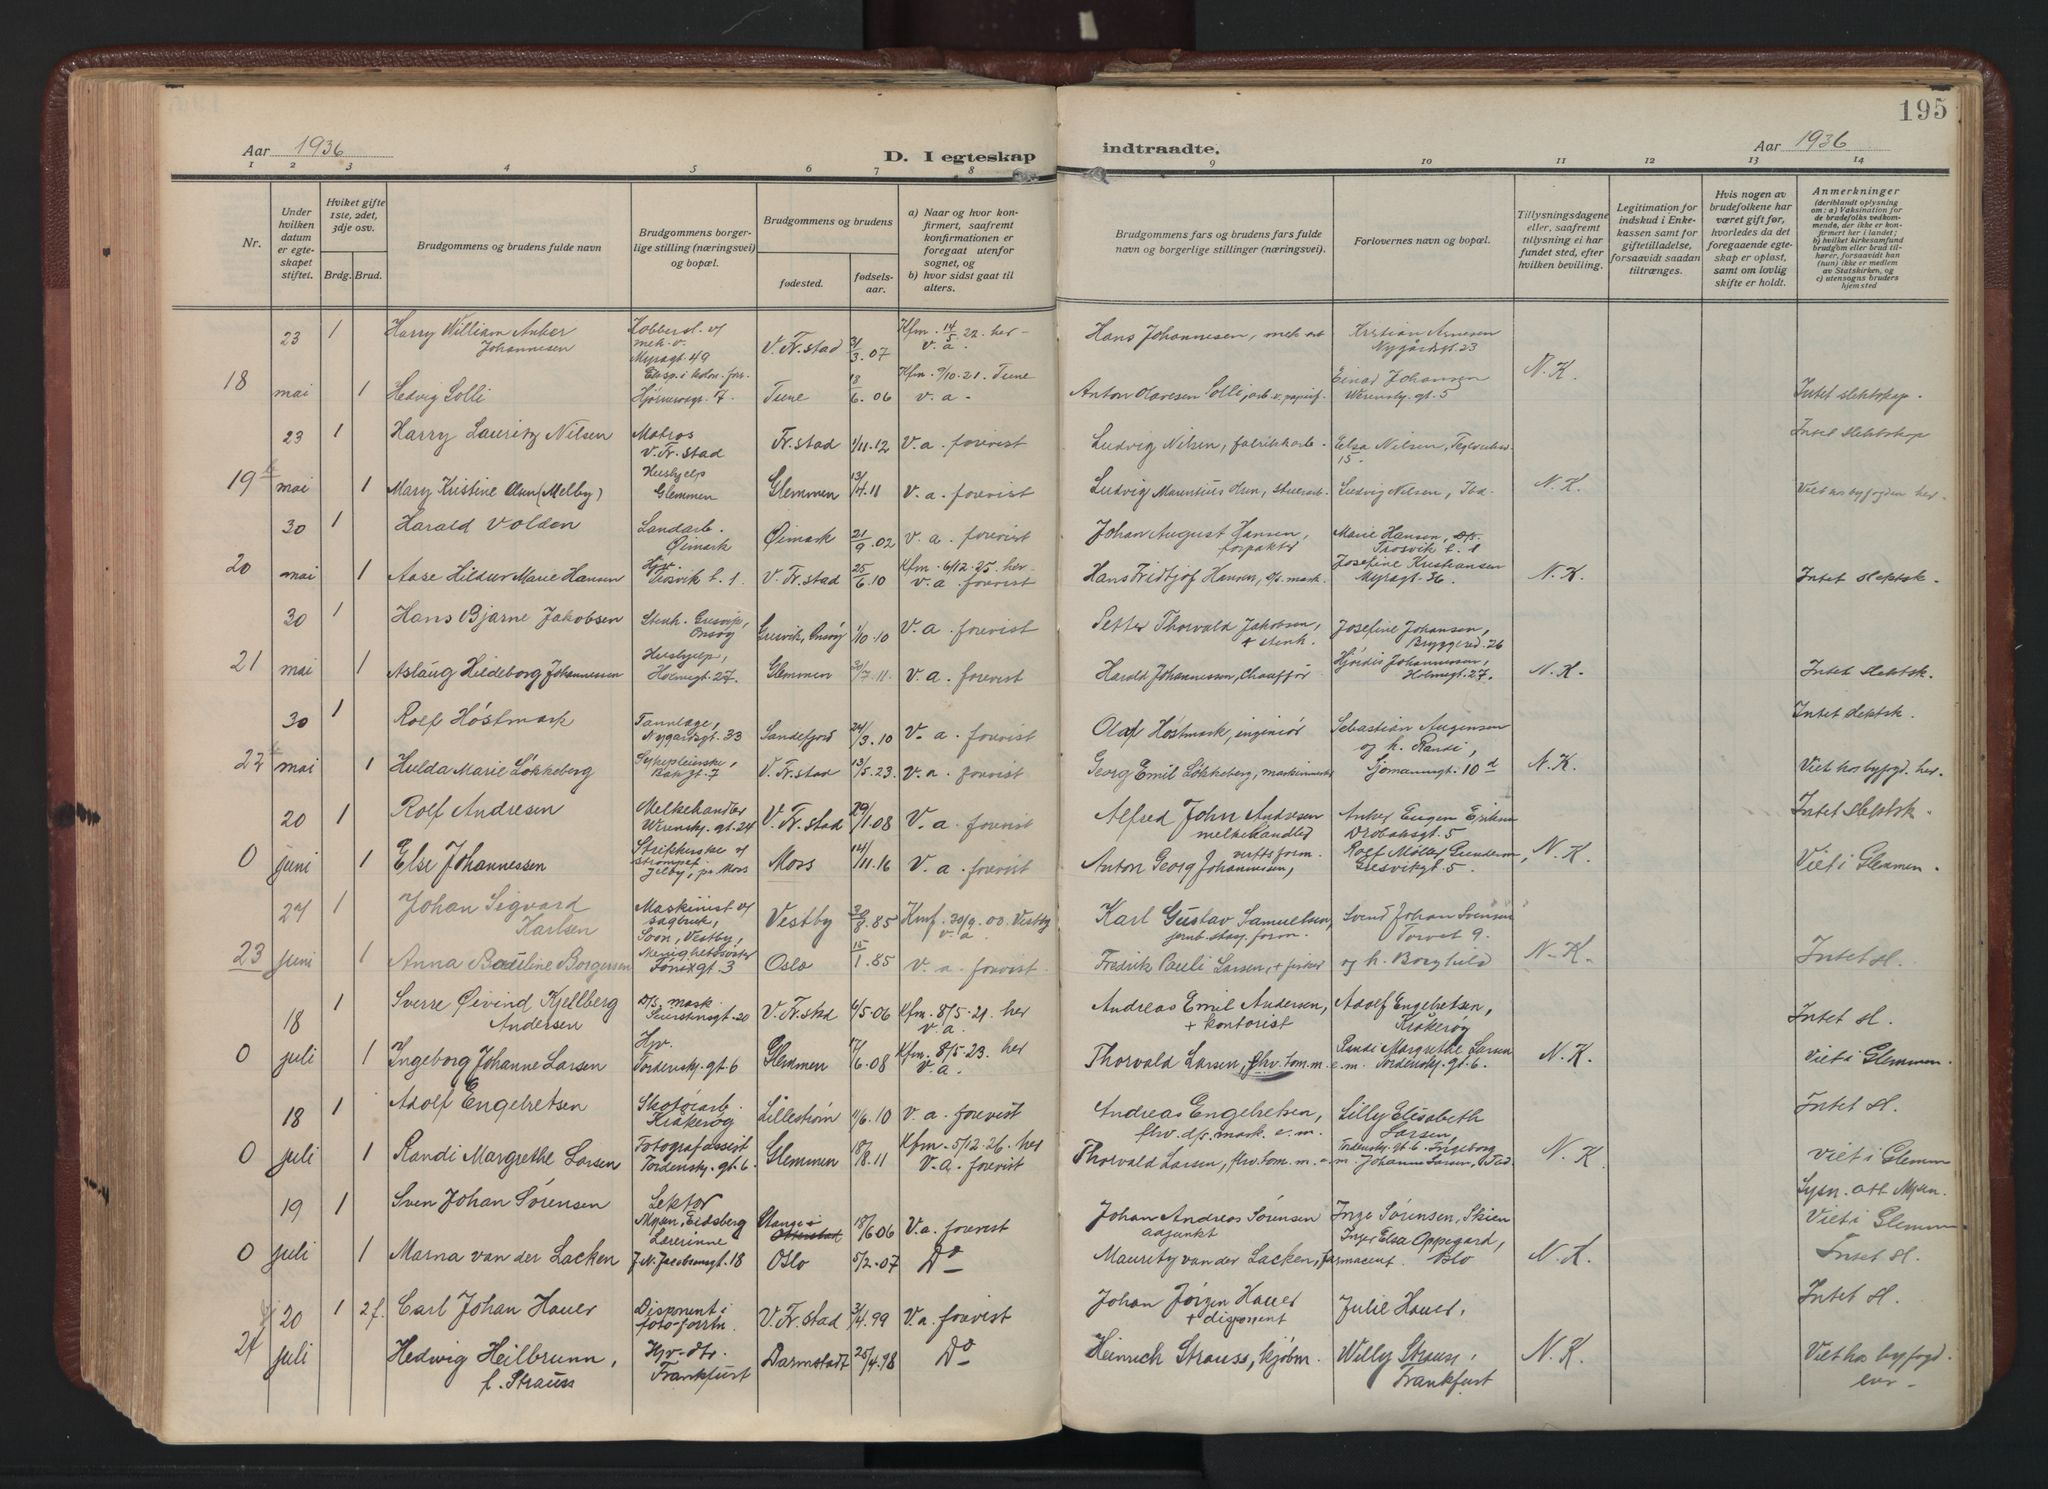 195
Aar 1936
D. I egteskap
indtraadte.
Aar 1936
1 2 3 4 5 6 7 8 9 10 11 12 13 14
Nr.
Under hvilken datum er egteskapet stiftet.
Hvilket gifte 1ste, 2det, 3dje osv.
Brdg. Brud.
Brudgommens og brudens fulde navn
Brudgommens borgerlige stilling (næringsvei) og bopæl.
Brudgommens og brudens
fødested.
fødselsaar.
a) Naar og hvor konfirmert, saafremt konfirmationen er foregaat utenfor sognet, og
b) hvor sidst gaat til alters.
Brudgommens fars og brudens fars fulde navn og borgerlige stillinger (næringsvei).
Forlovernes navn og bopæl.
Tillysningsdagene eller, saafremt tillysning ei har fundet sted, efter hvilken bevilling.
Legitimation for indskud i Enkekassen samt for giftetilladelse, forsaavidt saadan tiltrænges.
Hvis nogen av brudefolkene har været gift før, hvorledes da det foregaaende egteskap er opløst, samt om lovlig skifte er holdt.
Anmerkninger (deriblandt oplysning om: a) Vaksination for de brudefolks vedkommende, der ikke er konfirmert her i landet; b) hvilket kirkesamfund brudgom eller brud tilhører, forsaavidt han (hun) ikke er medlem av Statskirken, og c) utensogns bruders hjemsted
23 1 Harry William Anker Johannesen Kobbersl. v/ mek. v. Myragt. 49 V. Fr.stad 31/3.07 Kfm. 14/5 22. her - v. a. Hans Johannesen, mek. arb Kristian Arnesen Nygårdsgt. 23
18 mai 1 Hedvig Solli Eksp. i kolon. forr. Hjørnersgt. 7 Tune 18/6.06 Kfm. 9/10.21. Tune v. a - Anton Olavesen Solli, arb. v. papirf. Einar Johansen Werensk. gt. 5 N. K. Intet slektskap.
23 1 Harry Lauritz Nilsen Matros V. Fr. stad Fr. stad 1/11.12 V. a. forevist Ludvig Nilsen, fabrikkarb - Elsa Nilsen, 15 - Intet slektskap
19 mai 1 Mary Kristine Olsen (Melby) Hushjelp Glemmen Glemmen 13/4.11 V. a. forevist Ludvig Mauritius Olsen, stuerarb. Ludvig Nilsen, Ibd. N. K. Viet hos byfogden her -
30 1 Harald Volden Landarb. Øimark Øimark 21/9.02 v. a. forevist Johan August Hansen, forpakter Marie Hansen, Trosvik t. 1
20 mai 1 Aase Hildur Marie Hansen Hjv. Trosvik t. 1 V. Fr. stad 25/6.10 Kfm. 6/12.25. her - v. a forevist Hans Fridtjof Hansen, d/s. mask. Josefine Kristiansen Myragt. 36. N. K. Intet slektsk.
30 1 Hans Bjarne Jakobsen Stenh. Gresvik, Onsøy Gresvik, Onsøy 1/10.10 V. a. forevist Petter Thorvald Jakobsen, + stenh. Josefine Johansen, Bryggered. 26
21 mai 1 Aslaug Hildeborg Johannessen Hushjelp, Holmegt. 27. Glemmen 30/7.11. V. a. forevist Harald Johannessen, Chauffør Hjørdis Johannessen, Holmegt. 27. N. K. Intet slektsk.
30 1 Rolf Høstmark Tannlæge, Nygårdsgt. 33 Sandefjord 24/3.10 V. a. forevist Olaf Høstmark, ingeniør Sebastian Augensen og h. Randi, Intet slektsk.
22 mai 1 Hulda Marie Løkkeberg Sykepleierske, Bakgt. 7 V. Fr. stad 13/5.23. V. a. forevist Georg Emil Løkkeberg, Sjømannsgt. 10 d N. K. Viet hos byfgd. her.
20 1 Rolf Andresen Melkehandler Werensk. gt. 24 V. Fr. stad 29/1.08 V. a. forevist Alfred John Andresen melkehandler Anker Eugen Eriksen Drøbaksgt. 5 Intet slektsk.
0 juni 1 Else Johannessen Strikkerske v/ strømpef. Jelby, pr. Moss Moss 14/11.16 V. a. forevist Anton Georg Johannesen, verftsform. Rolf Møller Gundersen, Gresvikgt. 5. N. K. Viet i Glemmen.
27 1 Johan Sigvard Karlsen Maskinist v/ sagbruk, Soon, Vestby, Vestby 30/8.85 Kmf. 30/9.00. Vestby v. a. Karl Gustav Samuelsen, jernb. stasj. form. Svend Johan Svensen Torvet 9.
23 juni 1 Anna Bauline Borgersen Menighetssøster Fenixgt. 3 Oslo 15/1.85 v. a. forevist Fredrik Pauli Larsen, + fisker og h. Borghild N. K. Intet sl.
18 1 Sverre Øivind Kjellberg Andersen D/S. mask. Seierstensgt. 20 V. Fr. stad 6/5.06 Kfm. 8/5.21. her v. a. Andreas Emil Andersen, + kontorist Adolf Engebretsen, Kråkerøy Intet sl.
0 juli 1 Ingeborg Johanne Larsen Hjv. Tordensk. gt. 6 Glemmen 17/6.08 Kfm. 8/5.23. her v. a. Thorvald Larsen, fhv. tom. m. e. m. Randi Margrethe Larsen Tordensk. gt. 6. N. K. Viet i Glemmen.
18 1 Adolf Engebretsen Skotøiarb. Kråkerøy Lillestrøm 1/6.10 v. a. forevist Andreas Engebretsen, fhv. d/s. mask. e. m. Lilly Elisabeth Larsen, Intet sl.
0 juli 1 Randi Margrethe Larsen Fotografassist. Tordensk. gt. 6 Glemmen 18/8.11 Kfm. 5/12.26. her V. a. forevist Thorvald Larsen, fhv. tom. m. e. m. Tordensk. gt. 6. Ingeborg Johanne Larsen, Ibd. N. K. Viet i Glemm
19 1 Sven Johan Sørensen Lektor Mysen, Eidsberg Stange i 18/6.06 V. a. forevist Johan Andreas Sørensen adjunkt Inge Sørensen, Skien Sysn. att Mysen. Viet i Glemm
0 juli 1 Marna van der Lacken Lærerinne J. N. Jacobsensgt. 18 Oslo 5/2.07 Do Mauritz van der Lacken, farmaceut. Inger Elsa Oppegard, Oslo N. K. Intet sl.
20 1 2f. Carl Johan Hauer Disponent i foto-forretn. V. Fr. stad 3/4.99 V. a. forevist Johan Jørgen Hauer + disponent Julie Hauer, Intet sl.
24 juli Hedwig Heilbrunn, f. Strauss Hjv. dtr. Frankfurt Darmstadt 25/4.98 Do Heinrich Strauss, kjøbm. Willy Strauss, Frankfurt N. K. Viet hos byfogd. her -